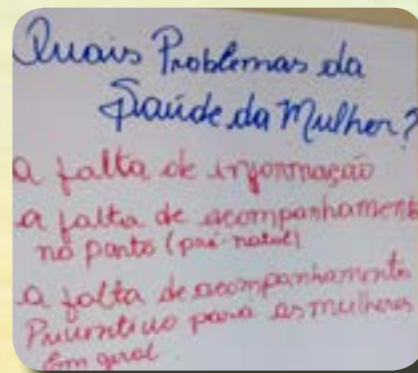 Quais Problemas da
Saúde da Mulher?
a falta de informação
a falta de acompanhamento
no parto (pré-natal)
a falta de acompanhamento
Preventivo para as mulheres
Em geral